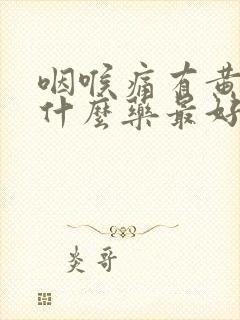 咽喉痛有黄
什麼藥最好
炎哥